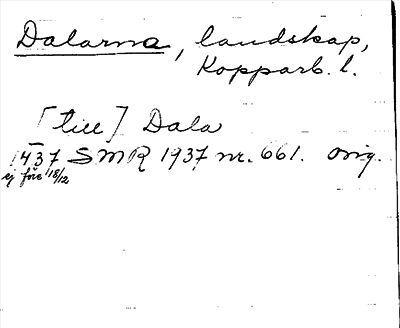 Dalarna, landskap,
Kopparb. l.
[till] Dala
1437 SMR 1937 nr. 661. orig.
ej före 18/12